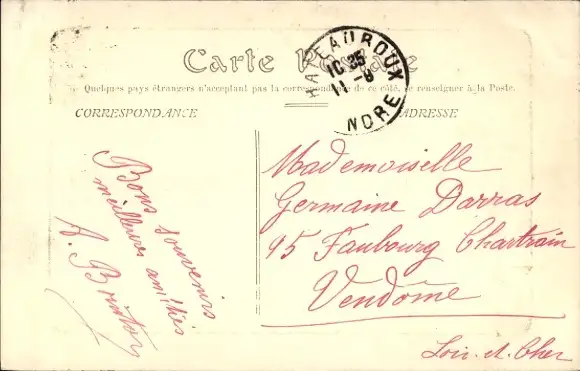 Carte Postale
Quelques pays étrangers n'acceptant pas la correspondance de ce côté, se renseigner à la Poste.
CORRESPONDANCE
ADRESSE
CHATEAUROUX
10 35
11 - 9
INDRE
Bons souvenirs
meilleures amitiés
A.
Mademoiselle
Germaine Darras
95 Faubourg Chartrain
Vendôme
Loir-et-Cher